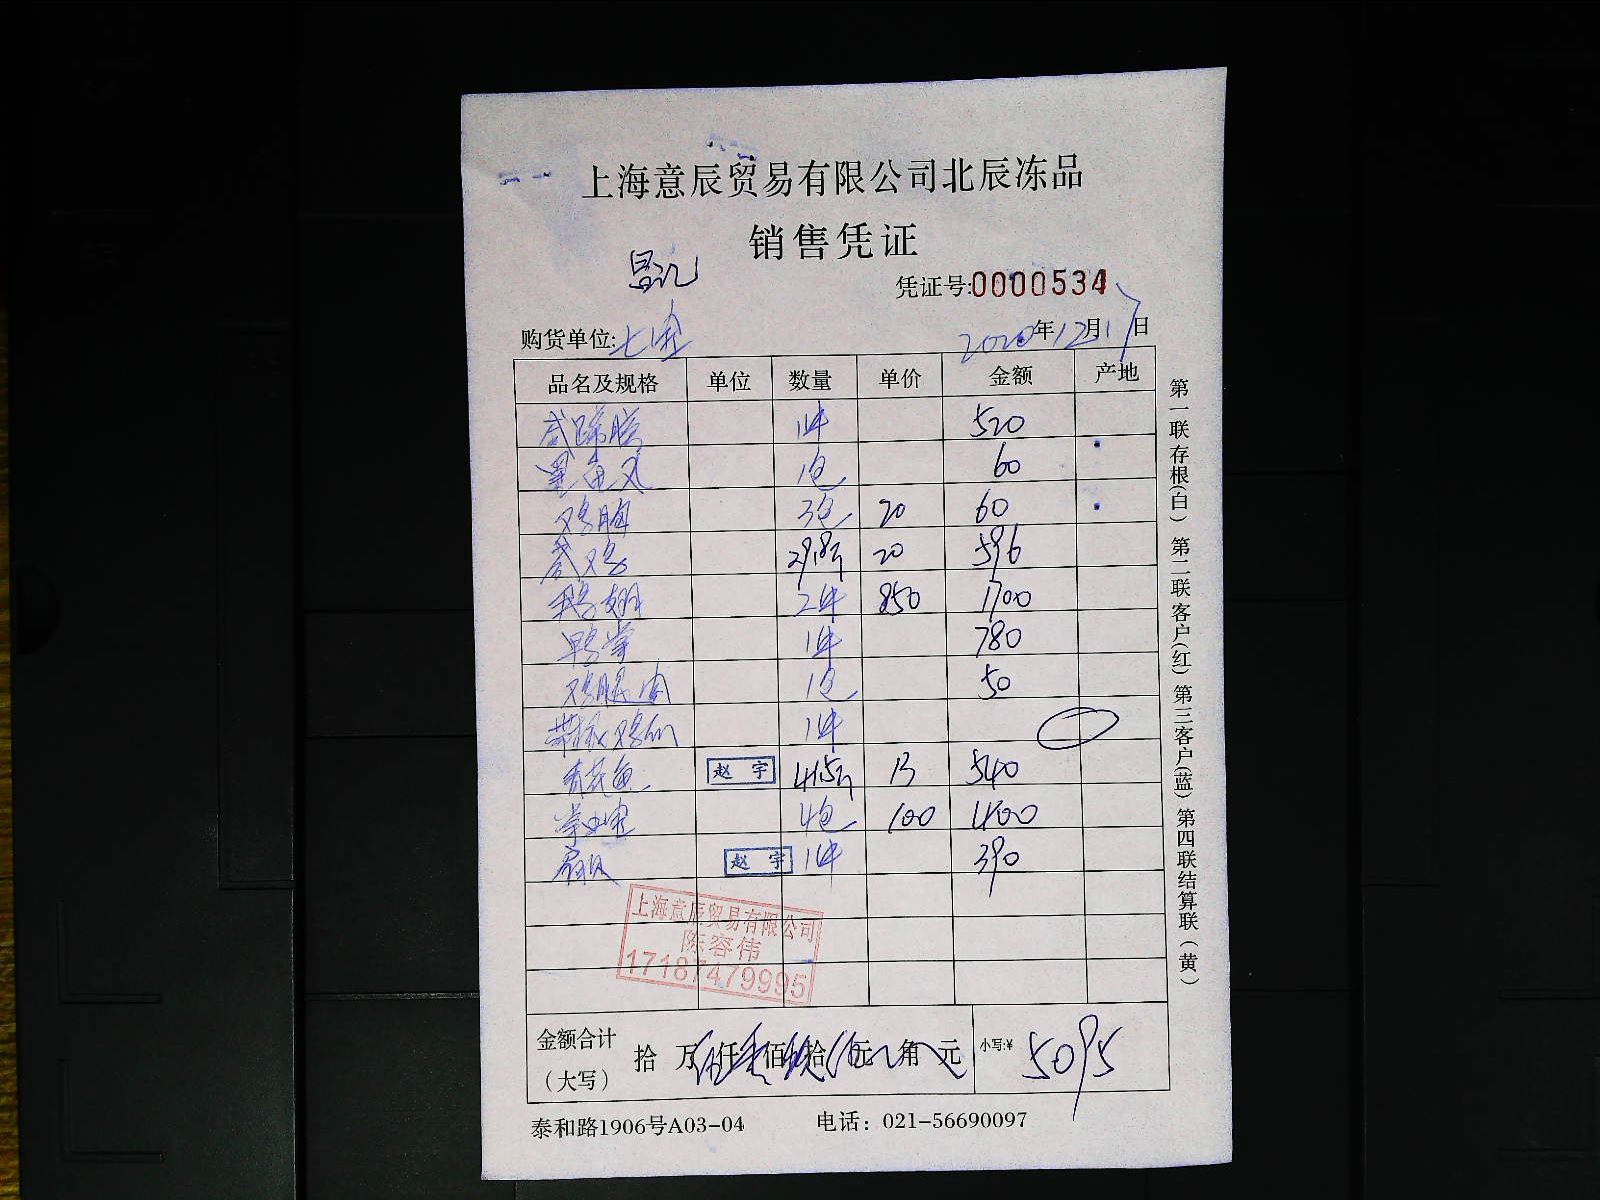 上海意辰贸易有限公司北辰冻品
销售凭证
昌记
凭证号:0000534
购货单位:七宝 2020年12月17日
品名及规格 单位 数量 单价 金额 产地
咸蹄膀 1件 520
墨鱼仔 1包 60
鸡胸 3包 20 60
咸鸡 29.8斤 20 596
鸭翅 2件 850 1700
鸭掌 1件 780
鸡腿肉 1包 50
1件
青花鱼 赵宇 41.5斤 13 540
掌中宝 4包 100 400
扇贝 赵宇 1件 390
上海意辰贸易有限公司
陈容伟
17187479995
金额合计
(大写)
拾 万 仟 佰 拾 元 角 元 小写:¥ 5095
泰和路1906号A03-04 电话：021-56690097
第一联存根(白) 第二联客户(红) 第三客户(蓝) 第四联结算联(黄)